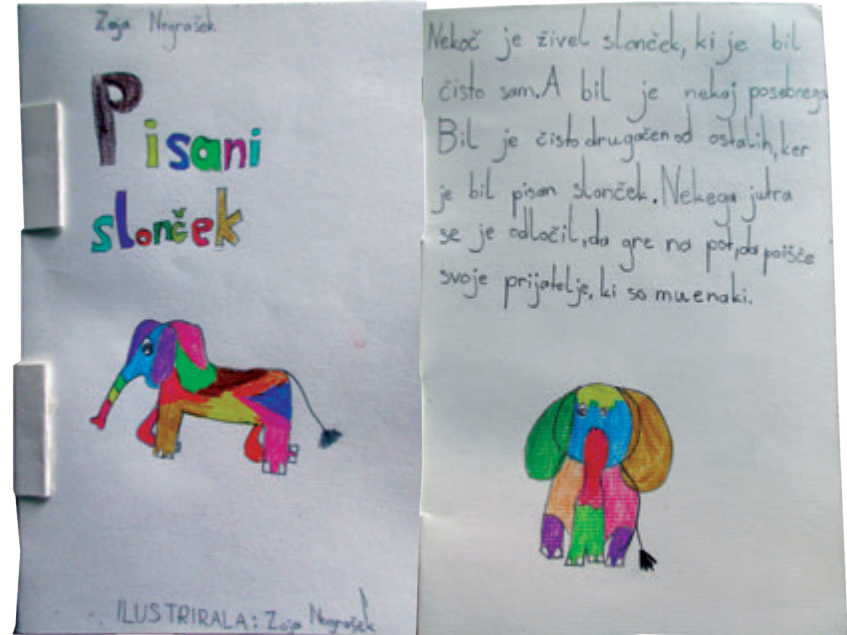 Zoja Nograšek
Pisani
slonček
ILUSTRIRALA: Zoja Nograšek
Nekoč je živel slonček, ki je bil
čisto sam. A bil je nekaj posebnega
Bil je čisto drugačen od ostalih, ker
je bil pisan slonček. Nekega jutra
se je odločil, da gre na pot, da poišče
svoje prijatelje, ki so mu enaki.